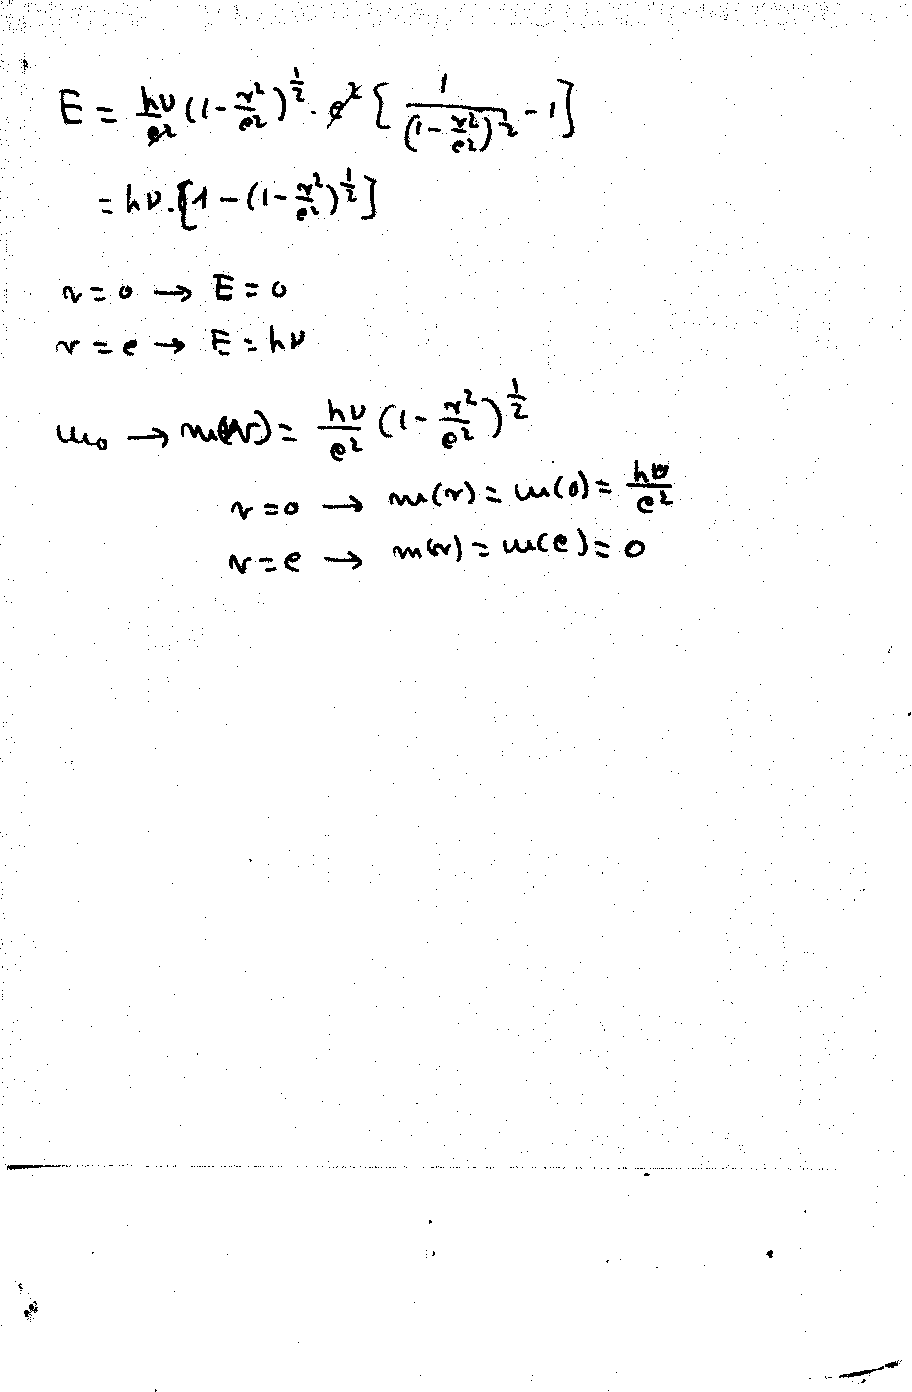 E = hν/c² (1 - v²/c²)^½ · c² [ 1/(1 - v²/c²)^½ - 1 ]
= hν · [1 - (1 - v²/c²)^½]
v = 0 → E = 0
v = c → E = hν
m₀ → m(v) = hν/c² (1 - v²/c²)^½
v = 0 → m(v) = m(0) = hν/c²
v = c → m(v) = m(c) = 0